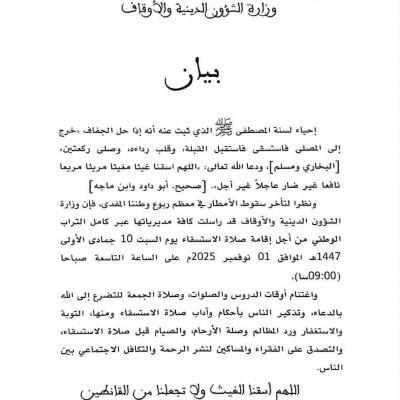 وزارة الشؤون الدينية والأوقاف
بيان
إحياء لسنة المصطفى ﷺ الذي ثبت عنه أنه إذا حل الجفاف «خرج
إلى المصلى فاستسقى فاستقبل القبلة، وقلب رداءه، وصلى ركعتين،
[البخاري ومسلم]، ودعا الله تعالى: «اللهم اسقنا غيثا مغيثا مريئا مريعا
نافعا غير ضار عاجلاً غير آجل». [صحيح. أبو داود وابن ماجه]
ونظرا لتأخر سقوط الأمطار في معظم ربوع وطننا المفدى، فإن وزارة
الشؤون الدينية والأوقاف قد راسلت كافة مديرياتها عبر كامل التراب
الوطني من أجل إقامة صلاة الاستسقاء يوم السبت 10 جمادى الأولى
1447هـ الموافق 01 نوفمبر 2025م على الساعة التاسعة صباحا
(09:00سا).
واغتنام أوقات الدروس والصلوات، وصلاة الجمعة للتضرع إلى الله
بالدعاء، وتذكير الناس بأحكام وآداب صلاة الاستسقاء ومنها، التوبة
والاستغفار ورد المظالم وصلة الأرحام، والصيام قبل صلاة الاستسقاء،
والتصدق على الفقراء والمساكين لنشر الرحمة والتكافل الاجتماعي بين
الناس.
اللهم أسقنا الغيث ولا تجعلنا من القانطين